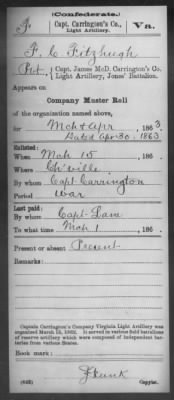 (Confederate.)
F | Capt. Carrington's Co., Light Artillery. | Va.
F. C. Fitzhugh
Pvt, Capt. James McD. Carrington's Co., Light Artillery, Jones' Battalion.
Appears on
Company Muster Roll
of the organization named above,
for Mch & Apr, 1863
Dated Apr 30, 1863
Enlisted:
When Mch 15, 186 .
Where Ch'ville
By whom Capt Carrington
Period War
Last paid:
By whom Capt Lam
To what time Mch 1, 186 .
Present or absent Present
Remarks:
Captain Carrington's Company Virginia Light Artillery was
organized March 13, 1862. It served in various field battalions
of reserve artillery which were composed of independent bat-
teries from various States.
Book mark:
(642)
Copyist.